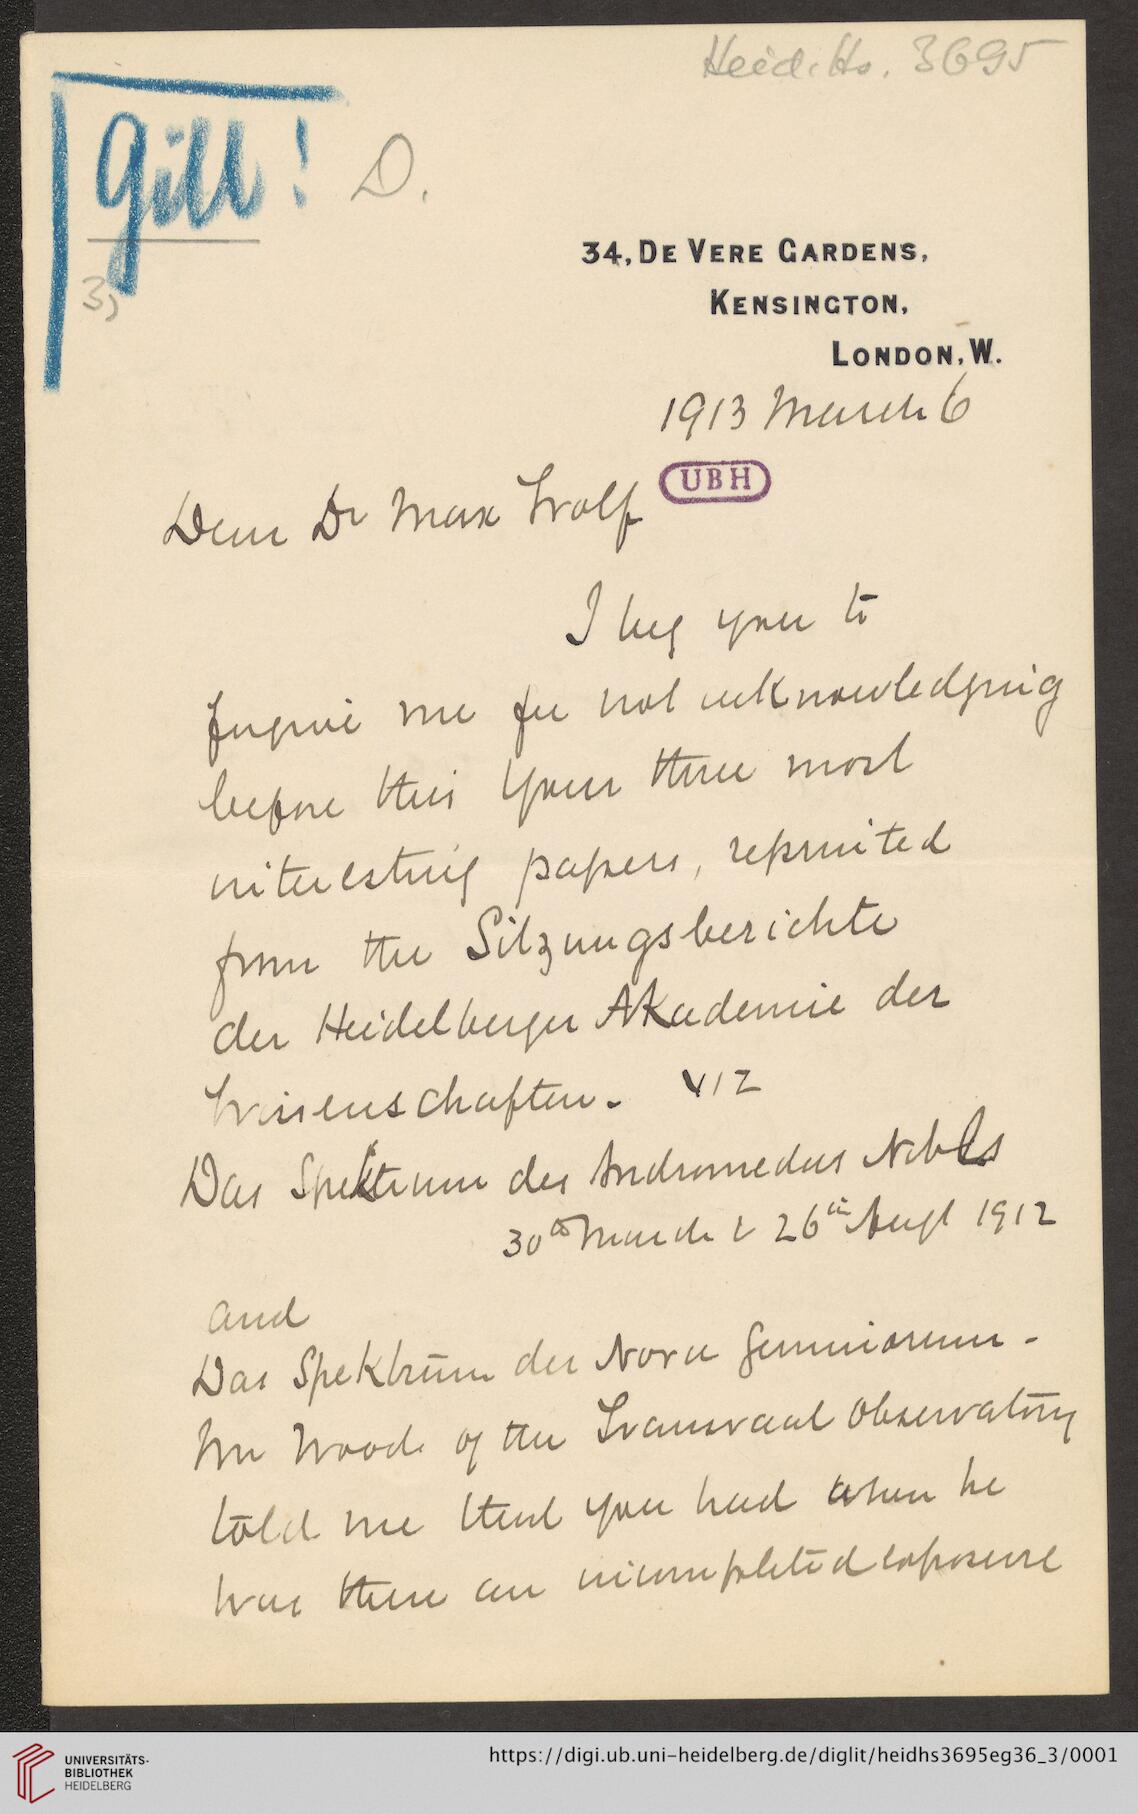 Heid. Hs. 3695
Gill! D.
3,
34, DE VERE GARDENS,
KENSINGTON,
LONDON, W.
1913 March 6
UBH
Dear Dr Max Wolf
I beg you to
forgive me for not acknowledging
before this your three most
interesting papers, reprinted
from the Sitzungsberichte
der Heidelberger Akademie der
Wissenschaften. viz
Das Spektrum des Andromedas Nebels
30th March & 26th Augt 1912
and
Das Spektrum der Nova Geminorum.
Mr Wood of the Transvaal Observatory
told me that you had when he
was there an incompleted exposure
UNIVERSITÄTS-
BIBLIOTHEK
HEIDELBERG
https://digi.ub.uni-heidelberg.de/diglit/heidhs3695eg36_3/0001